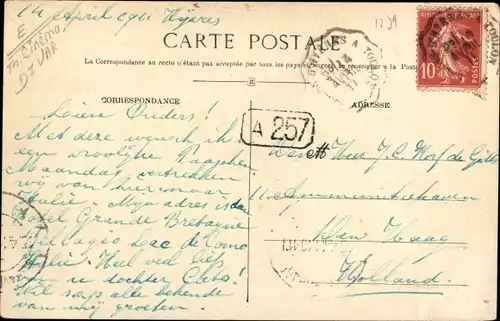 14 April 1911 Hyères
E
M. Cinéma
D-VAR
1239
CARTE POSTALE
La Correspondance au recto n'étant pas acceptée par tous les pays
se renseigner à la Poste
CORRESPONDANCE
ADRESSE
A 257
A TOULON
10
Lieve Ouders!
Met deze wensch ik U
een vroolijke Paaschen
Maandag vertrekken
wij van hier naar
Italië. Mijn adres is dan
Hotel Grande Bretagne
Bellagio Lac de Como
Italië. Heel veel liefs
van u dochter
Wil s.v.p. alle bekende
van mij groeten.
de
11 Ammunitiehaven
Den Haag
Holland.